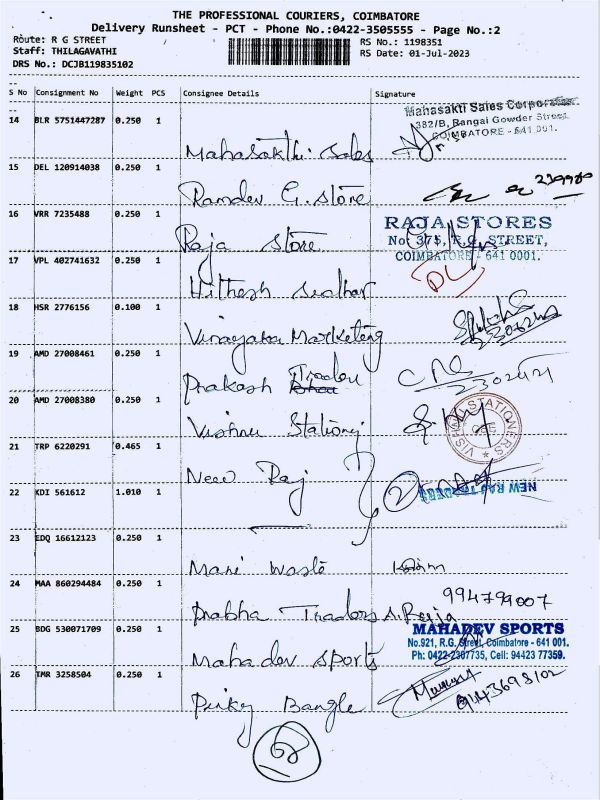 THE PROFESSIONAL COURIERS, COIMBATORE
Delivery Runsheet - PCT - Phone No.:0422-3505555 - Page No.:2
Route: R G STREET
RS No.: 1198351
Staff: THILAGAVATHI
RS Date: 01-Jul-2023
DRS No.: DCJB119835102
S No Consignment No Weight PCS Consignee Details Signature
14 BLR 5751447287 0.250 1
Mahasakti Sales Corporation
382/B, Rangai Gowder Street
COIMBATORE - 641 001.
Mahasakthi Sales
15 DEL 120914038 0.250 1
Ramdev G. Store
16 VRR 7235488 0.250 1
RAJA STORES
No. 375, R.G. STREET,
COIMBATORE - 641 0001.
Raja Store
17 VPL 402741632 0.250 1
Hithesh
18 HSR 2776156 0.100 1
Vinayaka Marketing
19 AMD 27008461 0.250 1
Prakash Traders
20 AMD 27008380 0.250 1
Vishnu Stationery
VISHNU STATIONERS
21 TRP 6220291 0.465 1
New Raj
22 KDI 561612 1.010 1
NEW RAJ TRADERS
23 EDQ 16612123 0.250 1
Mani Waste
24 MAA 860294484 0.250 1
994799007
Prabha Traders A. Raja
25 BDG 530071709 0.250 1
MAHADEV SPORTS
No.921, R.G. Street, Coimbatore - 641 001.
Ph: 0422-2307735, Cell: 94423 77359.
Mahadev Sports
26 TMR 3258504 0.250 1
9143698102
Bangle